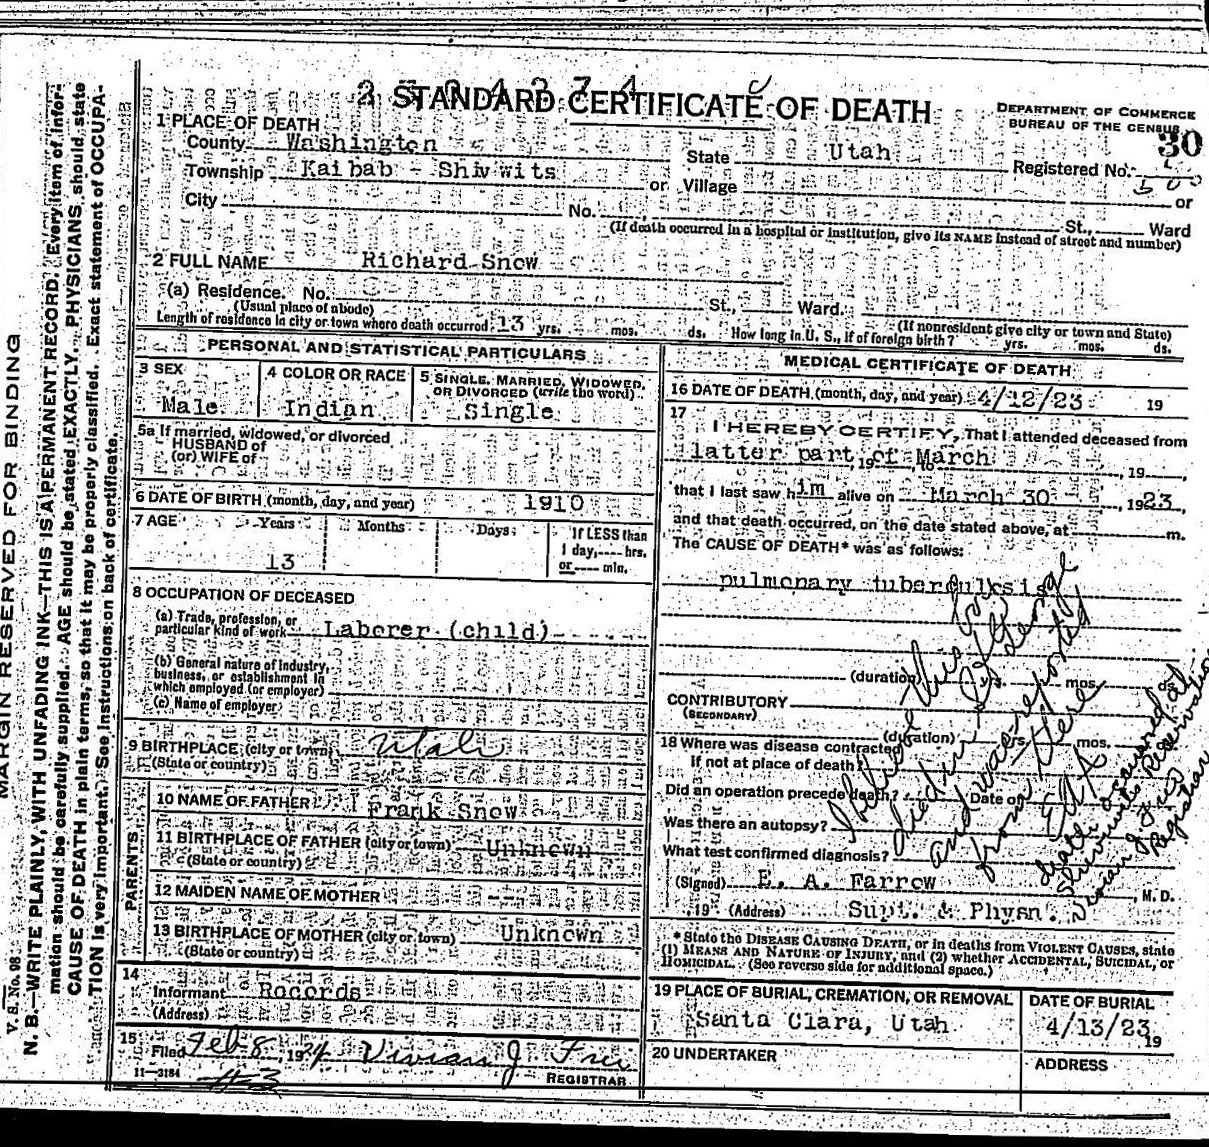 2304374
STANDARD CERTIFICATE OF DEATH
DEPARTMENT OF COMMERCE
BUREAU OF THE CENSUS
30
1 PLACE OF DEATH
County Washington State Utah Registered No.
Township Kaibab - Shivwits or Village or
City No. St., Ward
(If death occurred in a hospital or institution, give its NAME instead of street and number)
2 FULL NAME Richard Snow
(a) Residence. No. St., Ward.
(Usual place of abode) (If nonresident give city or town and State)
Length of residence in city or town where death occurred 13 yrs. mos. ds. How long in U. S., if of foreign birth? yrs. mos. ds.
PERSONAL AND STATISTICAL PARTICULARS
3 SEX 4 COLOR OR RACE 5 SINGLE, MARRIED, WIDOWED, OR DIVORCED (write the word)
Male Indian Single
5a If married, widowed, or divorced
HUSBAND of
(or) WIFE of
6 DATE OF BIRTH (month, day, and year) 1910
7 AGE Years Months Days If LESS than
1 day, hrs.
13 or min.
8 OCCUPATION OF DECEASED
(a) Trade, profession, or
particular kind of work Laborer (child)
(b) General nature of industry,
business, or establishment in
which employed (or employer)
(c) Name of employer
9 BIRTHPLACE (city or town) Utah
(State or country)
PARENTS
10 NAME OF FATHER Frank Snow
11 BIRTHPLACE OF FATHER (city or town) Unknown
(State or country)
12 MAIDEN NAME OF MOTHER
13 BIRTHPLACE OF MOTHER (city or town) Unknown
(State or country)
14
Informant Records
(Address)
15
Filed Feb 8, 1924 Vivian J. Frei
REGISTRAR
11-3184
MEDICAL CERTIFICATE OF DEATH
16 DATE OF DEATH (month, day, and year) 4/12/23 19
17
I HEREBY CERTIFY, That I attended deceased from
latter part of March, 19, to , 19
that I last saw him alive on March 30, 1923,
and that death occurred, on the date stated above, at m.
The CAUSE OF DEATH* was as follows:
pulmonary tuberculosis
(duration) yrs. mos. ds.
CONTRIBUTORY
(SECONDARY)
(duration) yrs. mos.
18 Where was disease contracted
If not at place of death?
Did an operation precede death? Date of
Was there an autopsy?
What test confirmed diagnosis?
(Signed) E. A. Farrow, M. D.
, 19 (Address) Supt. & Physn.
I believe this boy
died in St George
and was reported
from there
EAF
death occurred at
Shivwits Reservation
Vivian J. Frei
Registrar
* State the DISEASE CAUSING DEATH, or in deaths from VIOLENT CAUSES, state
(1) MEANS AND NATURE OF INJURY, and (2) whether ACCIDENTAL, SUICIDAL, or
HOMICIDAL. (See reverse side for additional space.)
19 PLACE OF BURIAL, CREMATION, OR REMOVAL DATE OF BURIAL
Santa Clara, Utah 4/13/23 19
20 UNDERTAKER ADDRESS
MARGIN RESERVED FOR BINDING
V. S. No. 98
N. B.—WRITE PLAINLY, WITH UNFADING INK—THIS IS A PERMANENT RECORD. Every item of infor-
mation should be carefully supplied. AGE should be stated EXACTLY. PHYSICIANS should state
CAUSE OF DEATH in plain terms, so that it may be properly classified. Exact statement of OCCUPA-
TION is very important. See instructions on back of certificate.